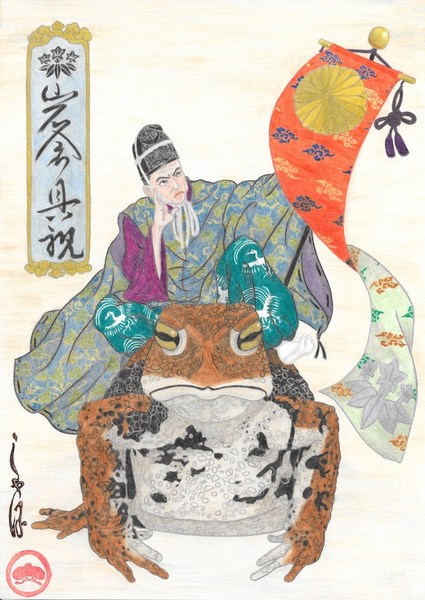 岩倉具視